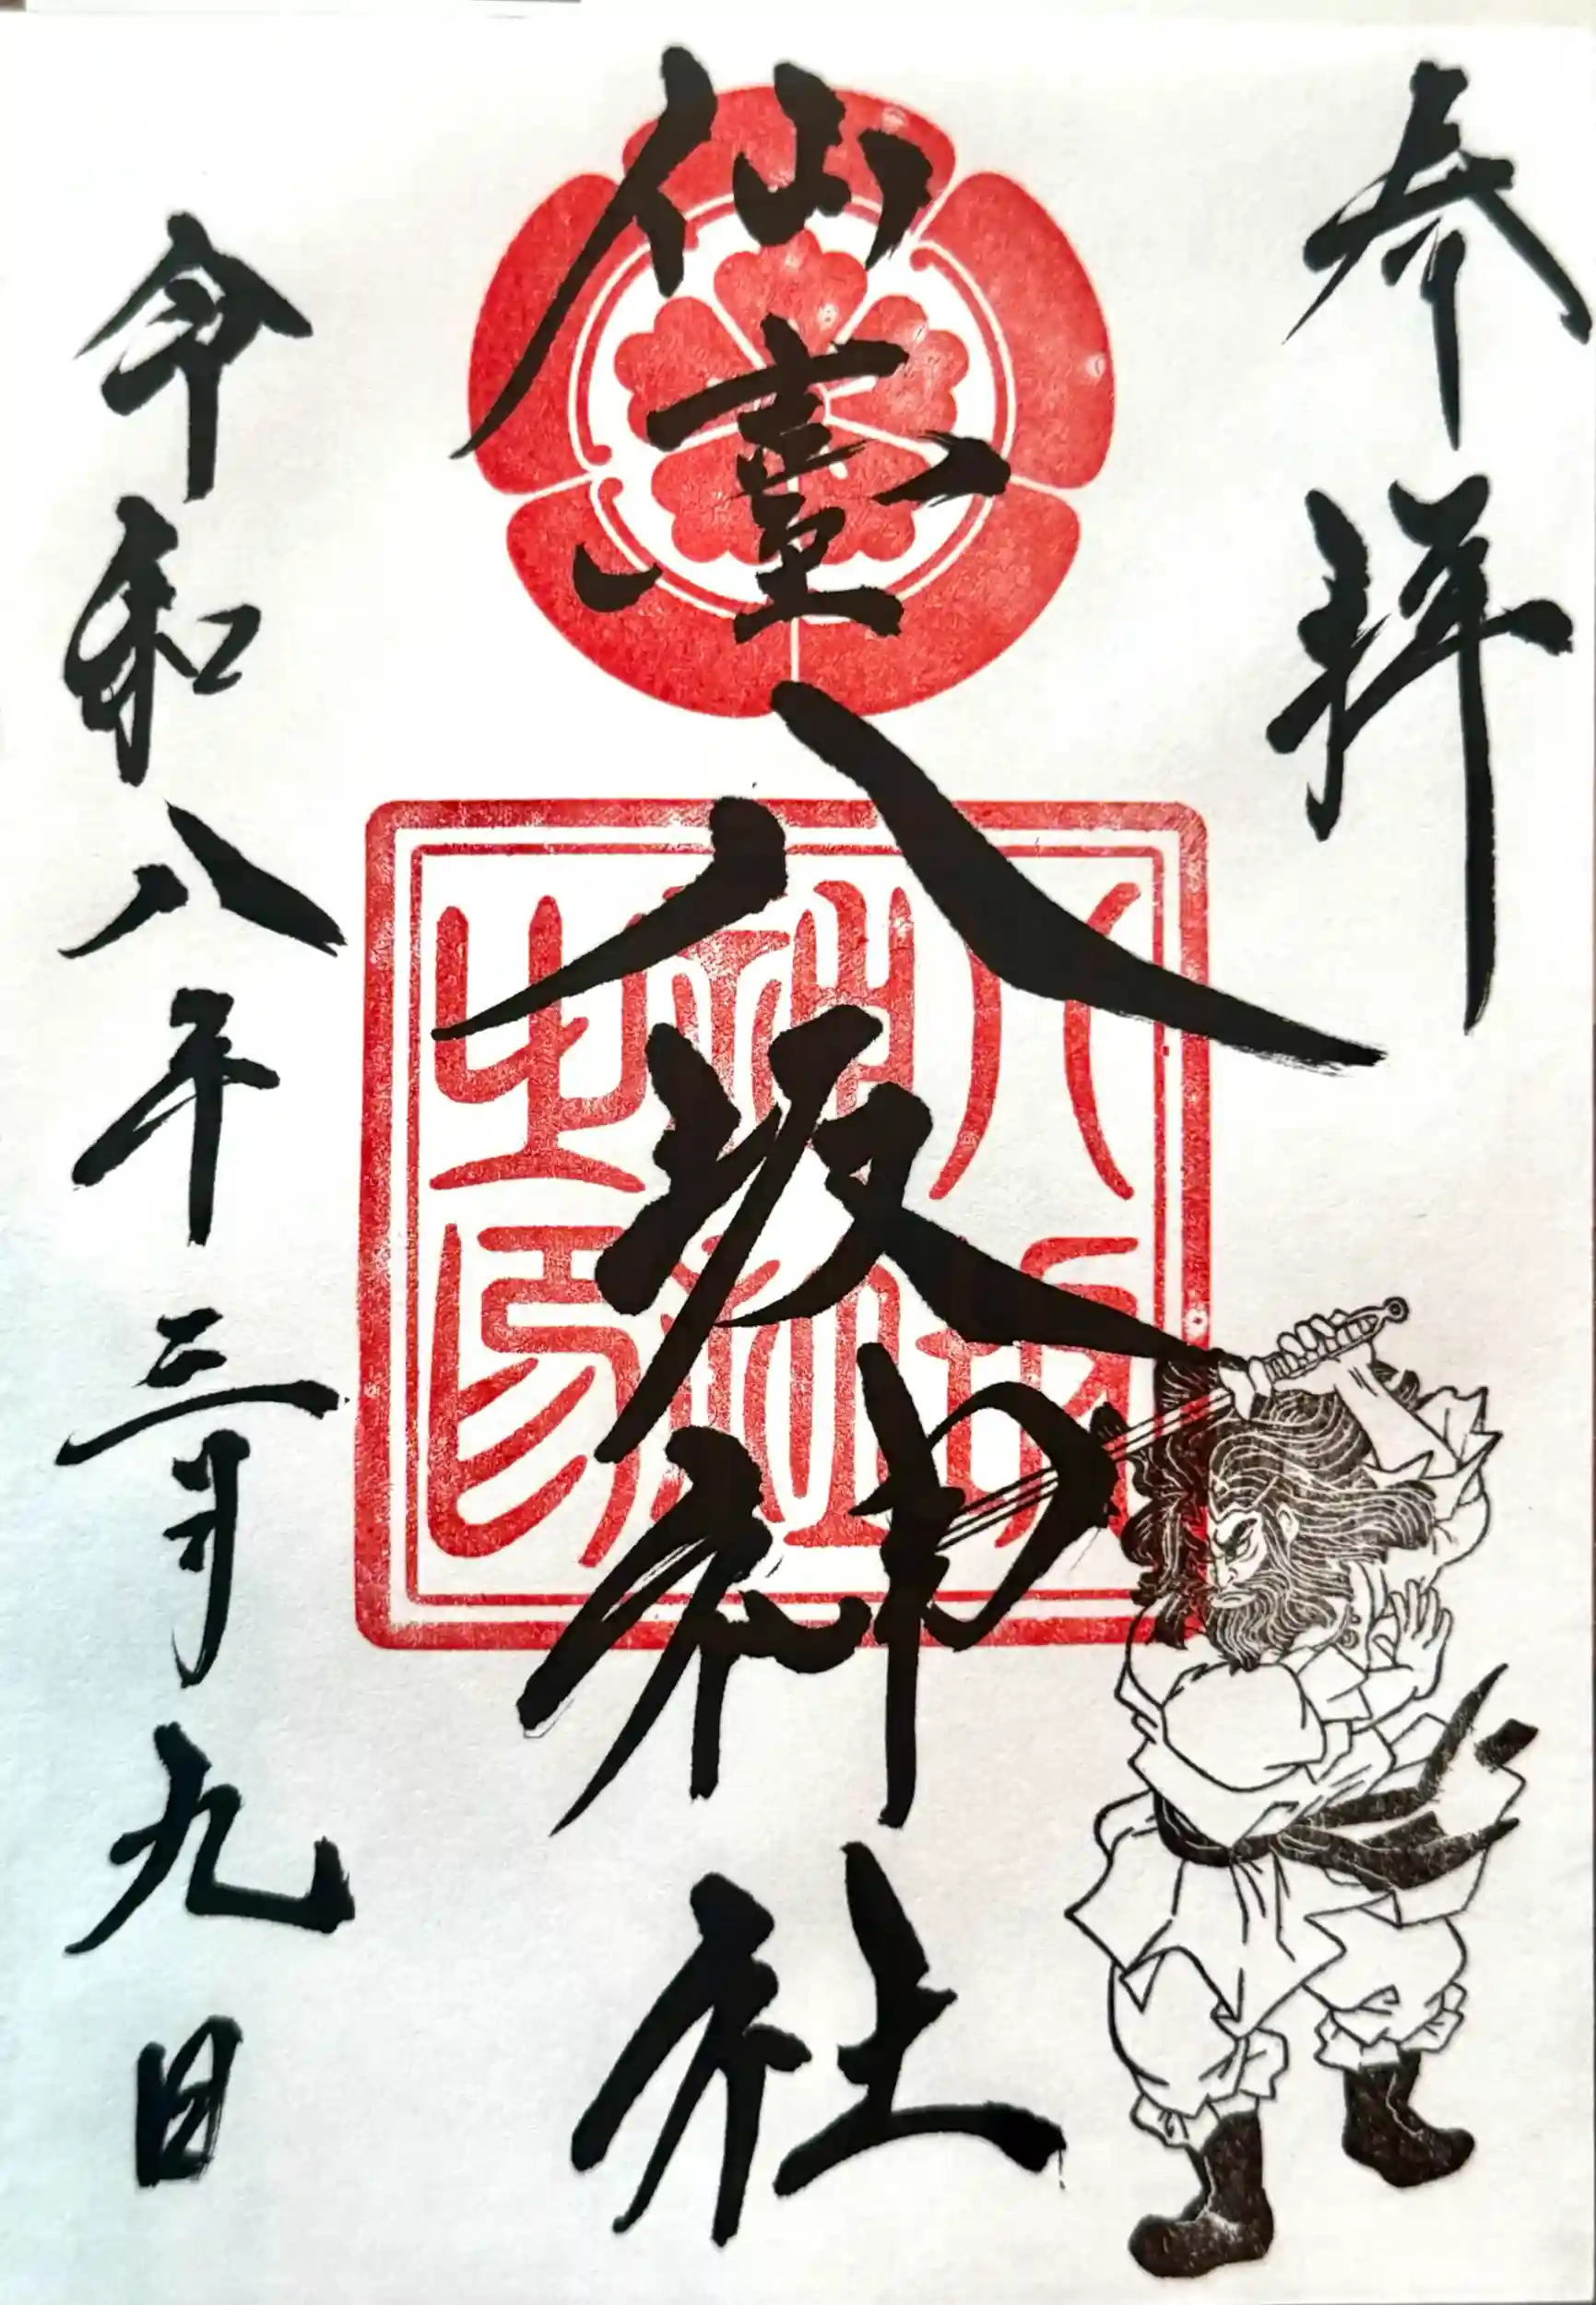 参拝
仙臺八坂神社
八坂神社之印
令和八年三月九日